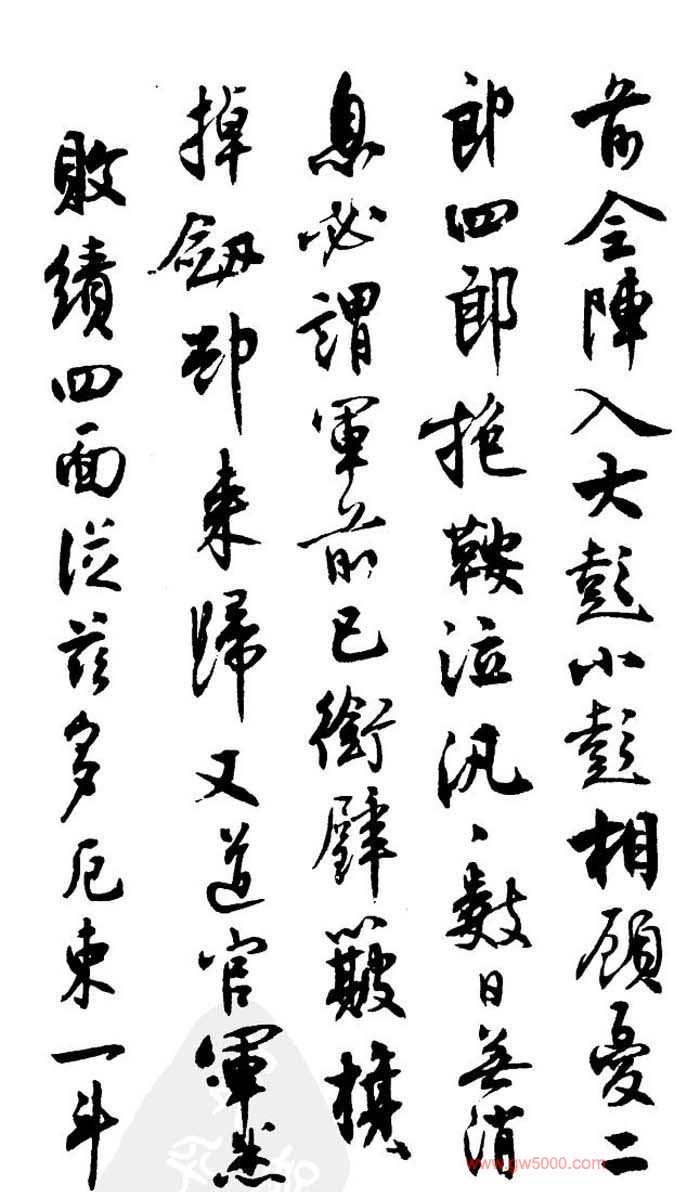 前全陣入大彭小彭相顧憂二
郎四郎抱鞍泣汎〻數日無消
息必謂軍前已銜璧簸旗
掉劒却來歸又道官軍悉
敗績四面從茲多厄束一斗
www.gw5000.com